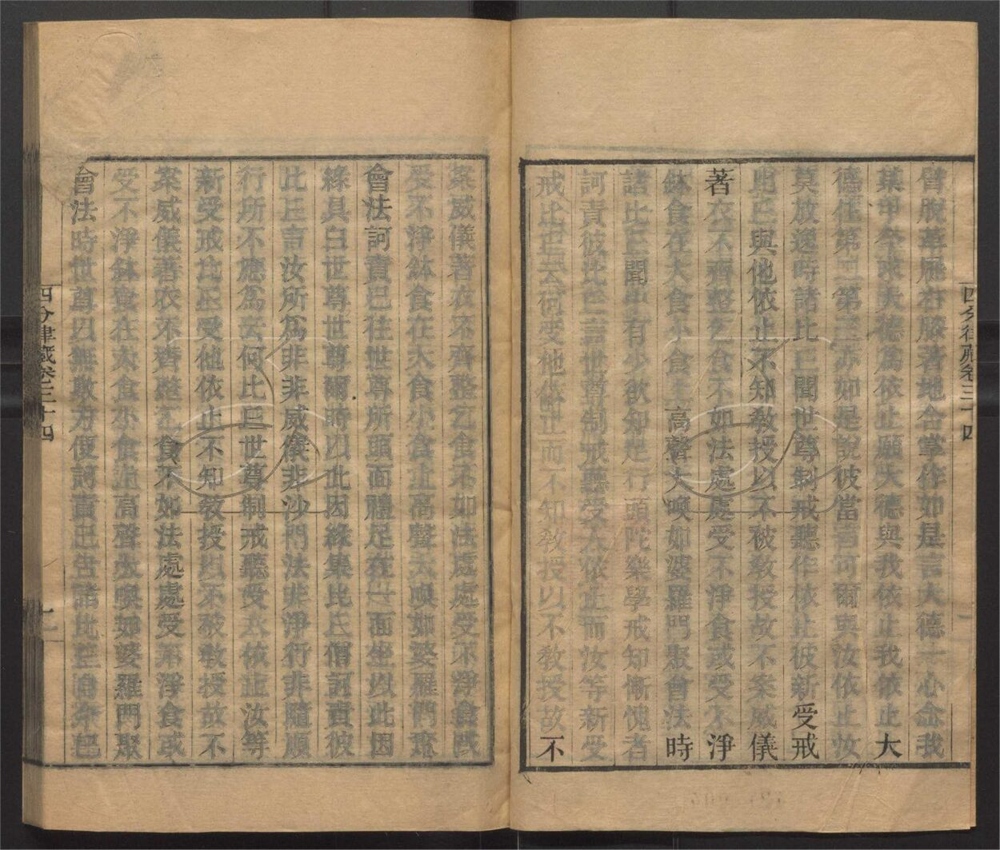 四分律藏卷三十四
臂脫革屣右膝著地合掌作如是言大德一心念我
某甲今求大德為依止願大德與我依止我依止大
德住第二第三亦如是說彼當言可爾與汝依止汝
莫放逸時諸比丘聞世尊制戒聽作依止彼新受戒
比丘與他依止不知教授以不被教授故不案威儀
著衣不齊整乞食不如法處處受不淨食或受不淨
鉢食在大食小食 高聲大喚如婆羅門聚會法時
諸比丘聞中有少欲知足行頭陀樂學戒知慚愧者
訶責彼比丘言世尊制戒聽受人依止而汝等新受
戒比丘云何受他依止而不知教授以不教授故不
案威儀著衣不齊整乞食不如法處處受不淨食或
受不淨鉢食在大食小食上高聲大喚如婆羅門聚
會法訶責已往世尊所頭面禮足在一面坐以此因
緣具白世尊世尊爾時以此因緣集比丘僧訶責彼
比丘言汝所為非非威儀非沙門法非淨行非隨順
行所不應為云何比丘世尊制戒聽受人依止汝等
新受戒比丘受他依止不知教授以不被教授故不
案威儀著衣不齊整乞食不如法處處受不淨食或
受不淨鉢食在大食小食上高聲大喚如婆羅門聚
會法時世尊以無數方便訶責已告諸比丘自今已
四分律藏卷三十四